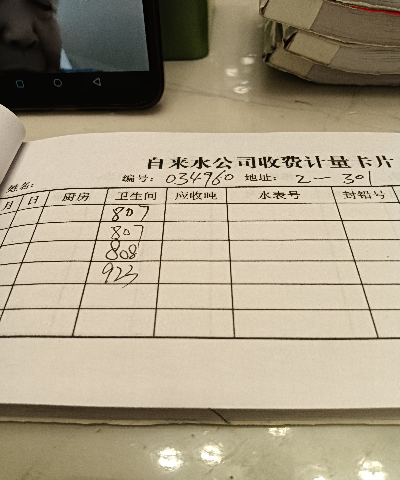 自来水公司收费计量卡片
编号: 034960 地址: 2—301
姓名:
月 日 厨房 卫生间 应收吨 水表号 封铅号
807
807
808
923